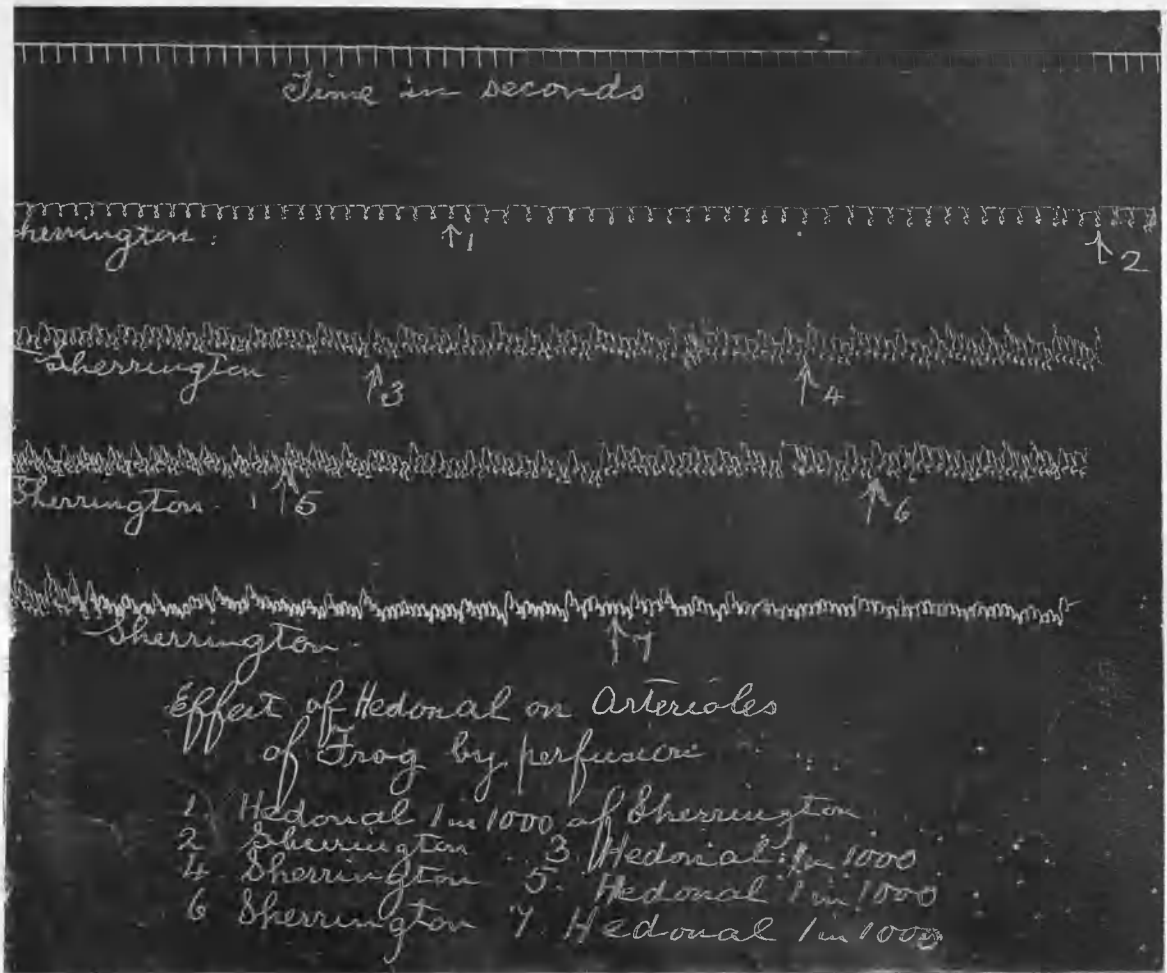 Time in seconds
Sherrington.
↑1
↑2
Sherrington
↑3
↑4
Sherrington.
↑5
↑6
Sherrington.
↑7
Effect of Hedonal on Arterioles
of Frog by perfusion
1 Hedonal 1 in 1000 of Sherrington
2 Sherrington 3 Hedonal 1 in 1000
4 Sherrington 5. Hedonal 1 in 1000
6 Sherrington 7. Hedonal 1 in 1000